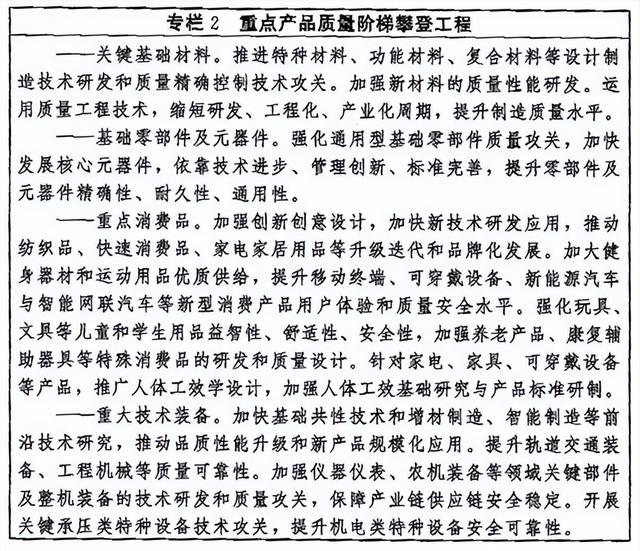 专栏2 重点产品质量阶梯攀登工程
——关键基础材料。推进特种材料、功能材料、复合材料等设计制
造技术研发和质量精确控制技术攻关。加强新材料的质量性能研发。运
用质量工程技术，缩短研发、工程化、产业化周期，提升制造质量水平。
——基础零部件及元器件。强化通用型基础零部件质量攻关，加快
发展核心元器件，依靠技术进步、管理创新、标准完善，提升零部件及
元器件精确性、耐久性、通用性。
——重点消费品。加强创新创意设计，加快新技术研发应用，推动
纺织品、快速消费品、家电家居用品等升级迭代和品牌化发展。加大健
身器材和运动用品优质供给，提升移动终端、可穿戴设备、新能源汽车
与智能网联汽车等新型消费产品用户体验和质量安全水平。强化玩具、
文具等儿童和学生用品益智性、舒适性、安全性，加强养老产品、康复辅
助器具等特殊消费品的研发和质量设计。针对家电、家具、可穿戴设备
等产品，推广人体工效学设计，加强人体工效基础研究与产品标准研制。
——重大技术装备。加快基础共性技术和增材制造、智能制造等前
沿技术研究，推动品质性能升级和新产品规模化应用。提升轨道交通装
备、工程机械等质量可靠性。加强仪器仪表、农机装备等领域关键部件
及整机装备的技术研发和质量攻关，保障产业链供应链安全稳定。开展
关键承压类特种设备技术攻关，提升机电类特种设备安全可靠性。